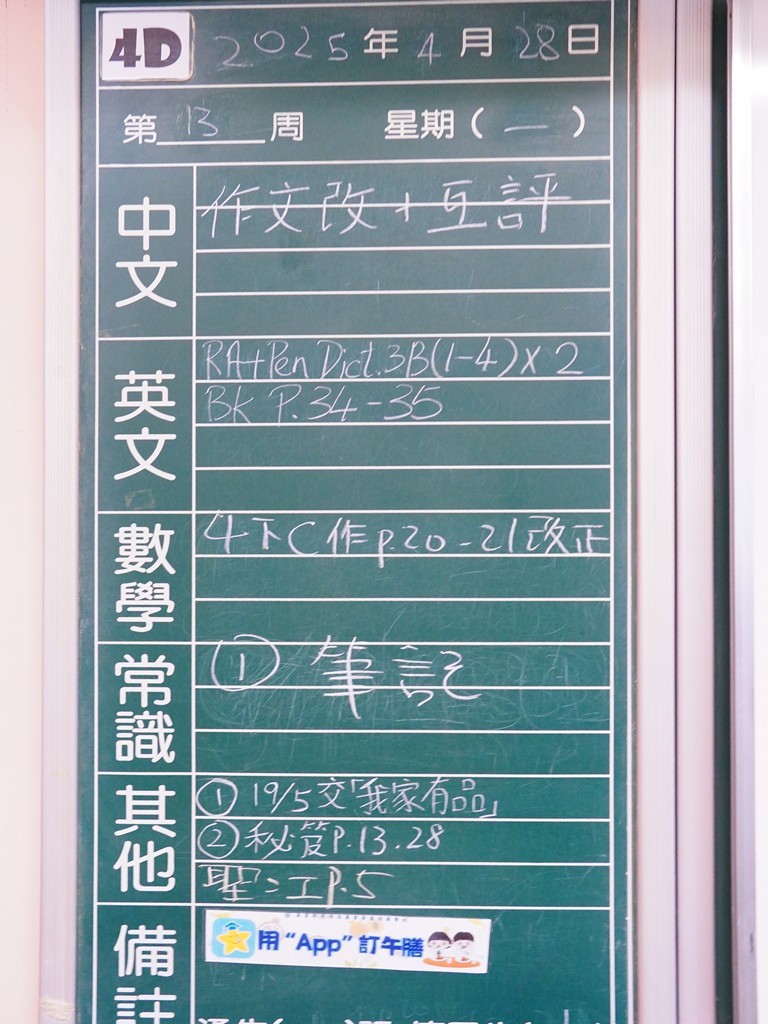 4D 2025年4月28日
第13周 星期(一)
中文 作文改+互評
英文 RA+Pen Dict.3B(1-4)X2
BK P.34-35
數學 4下C作p.20-21改正
常識 ① 筆記
其他 ① 19/5交「我家有品」
② 秘管P.13.28
聖:工P.5
備註 用“App”訂午膳